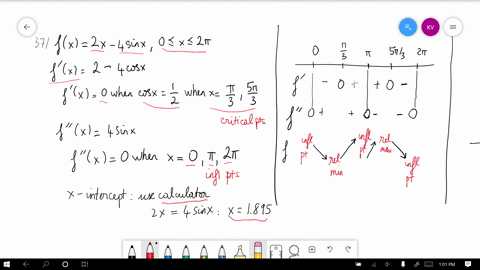 37/ f(x) = 2x - 4sinx, 0 ≤ x ≤ 2π
f'(x) = 2 - 4cosx
f'(x) = 0 when cosx = 1/2 when x = π/3, 5π/3
critical pts
f''(x) = 4sinx
f''(x) = 0 when x = 0, π, 2π
infl pts
x-intercept: use calculator
2x = 4sinx: x = 1.895
0 π/3 π 5π/3 2π
f' - 0 + + 0 -
f'' 0 + + 0 - - 0
f infl pt rel min infl pt rel max infl pt
KV
1:01 PM